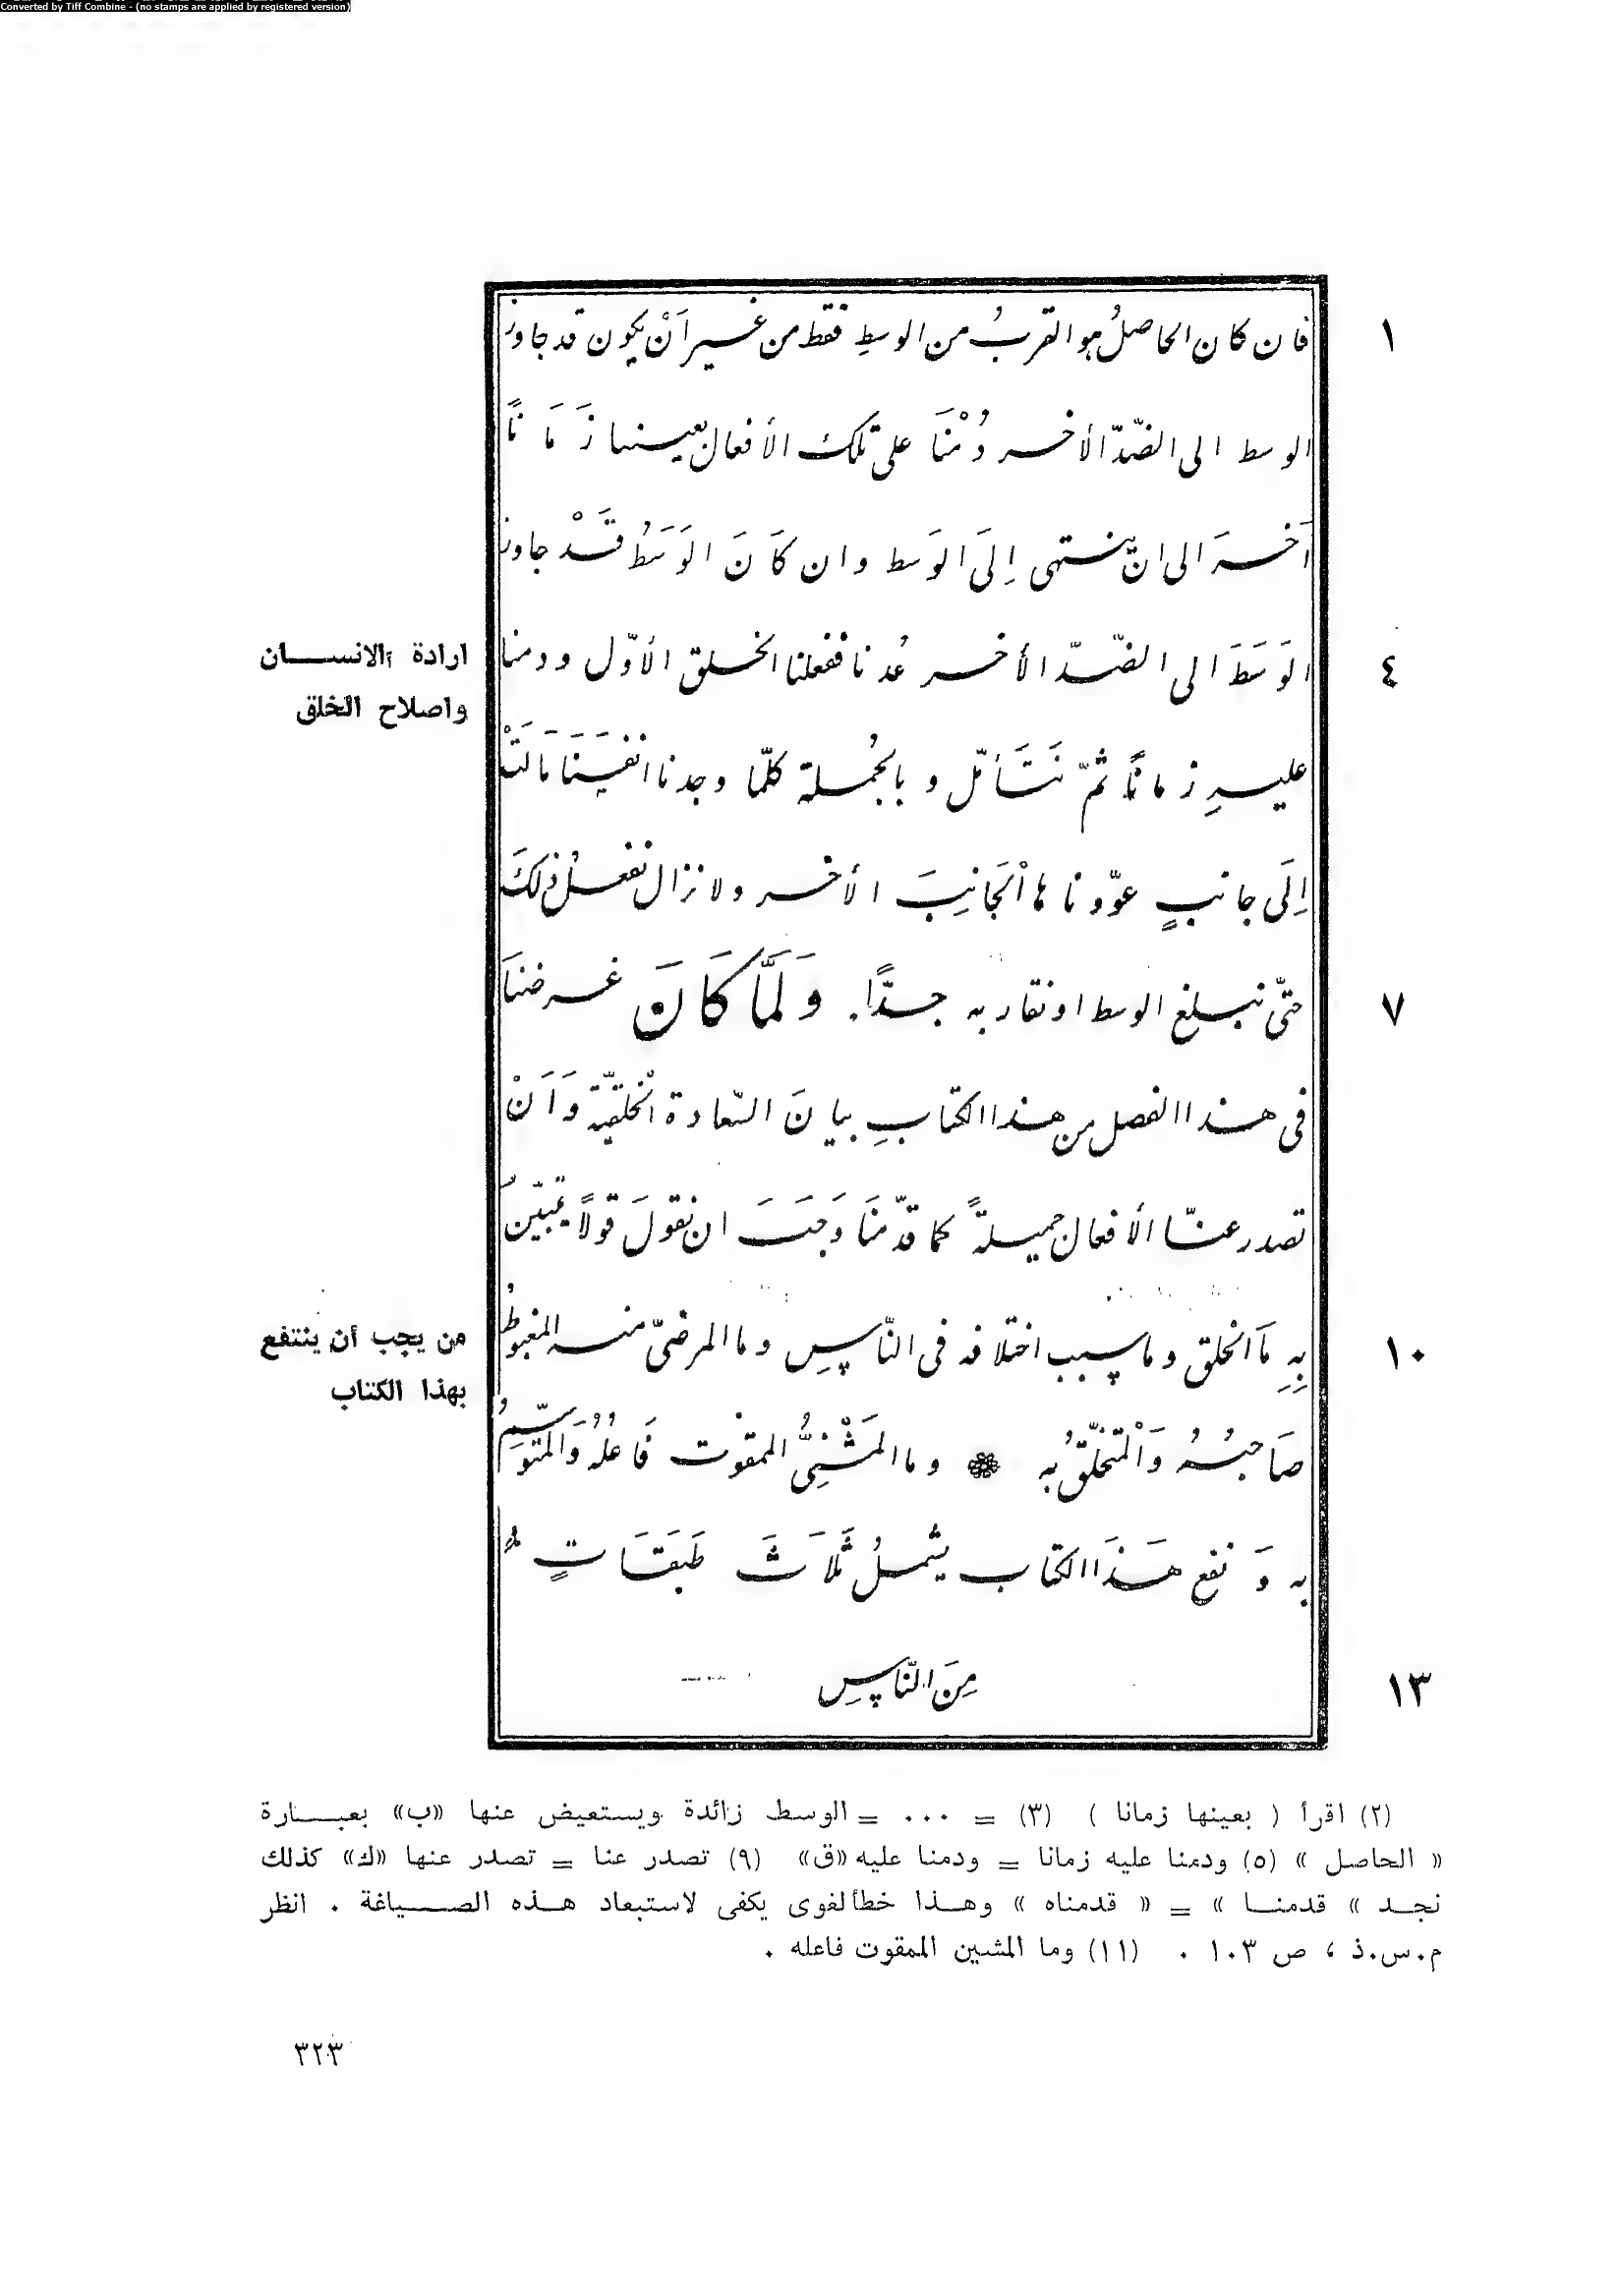 Converted by Tiff Combine - (no stamps are applied by registered version)
١
فان كان الحاصلُ هو القربُ من الوسطِ فقط من غير اَنْ يكون قد جاوز
الوسط الى الضّدّ الأخر دُمْنَا على تلك الأفعال بعينها زَمَانًا
اَخرَ الى ان ينتهى اِلَى الوَسط وان كَانَ الوَسَطُ قَدْ جاوز
٤
الوَسَطَ الى الضّدّ الأخر عُدنا ففعلنا الخلق الأوّل ودمنا
ارادة الانسان
واصلاح الخلق
عليهِ زمانًا ثُمّ نَتَأمّل وبالجُملة كلّما وجدنا انفسَنَا مَالَتْ
اِلَى جانبٍ عوّدناها اْلجَانِبَ الأخر ولا نزال نفعلُ ذلكَ
٧
حتّى نبلغ الوسط او نقاربه جدًّا. وَلَمَّا كَانَ غرضنَا
فى هذا الفصل من هذا الكتابِ بيانَ السّعادة اْلخلقيّة وَاَنْ
تصدر عنّا الأفعال جميلةً كما قدّمنَا وَجَبَ ان نقولَ قولًا يُبيّن
١٠
بِهِ مَا اْلخلق وما سبب اختلافه فى النّاسِ وما المرضىّ منه المغبوطُ
من يجب أن ينتفع
بهذا الكتاب
صَاحبُهُ وَاْلمتخلّقُ به وما المَشْنِىُّ الممقوت فَاعلُهُ وَالمتوسّمُ
به وَنفع هَذَا الكتاب يشملُ ثَلَاثَ طَبَقَاتٍ
١٣
مِنَ النّاسِ
(٢) اقرأ ( بعينها زمانا ) (٣) = ٠٠٠ = الوسط زائدة ويستعيض عنها «ب» بعبارة
« الحاصل » (٥) ودمنا عليه زمانا = ودمنا عليه «ق» (٩) تصدر عنا = تصدر عنها «ك» كذلك
نجد » قدمنا » = « قدمناه » وهذا خطألغوى يكفى لاستبعاد هذه الصياغة . انظر
م.س.ذ ، ص ١٠٣ . (١١) وما المشين الممقوت فاعله .
٣٢٣